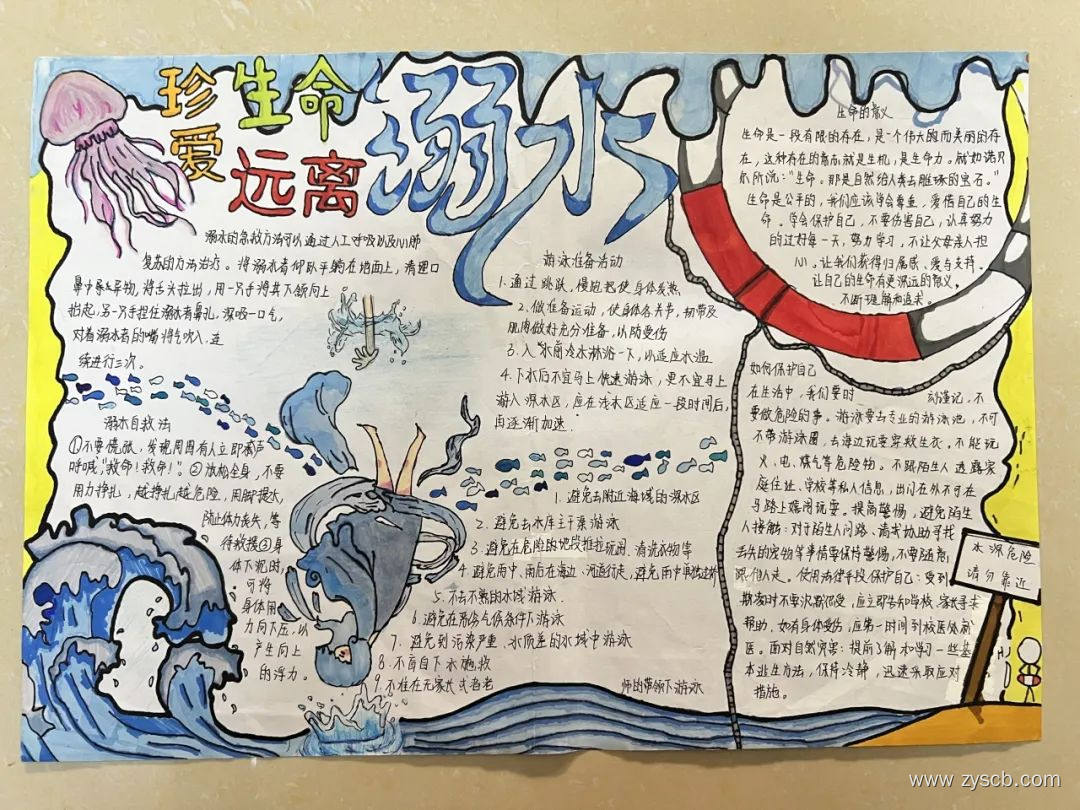 珍爱生命
远离溺水
溺水的急救方法可以通过人工呼吸以及心肺
复苏的方法治疗。将溺水者仰卧平躺在地面上，清理口
鼻中异物，将舌头拉出，用一只手将其下颌向上
抬起，另一只手捏住溺水者鼻孔，深吸一口气，
对着溺水者的嘴将气吹入，连
续进行三次。
溺水自救法
①不要慌张，发现周围有人立即大声
呼喊"救命！救命！"。②放松全身，不要
用力挣扎，越挣扎越危险，用脚提水，
防止体力丧失，等
待救援③身
体下沉时，
可将
身体用
力向下压，以
产生向上
的浮力。
游泳准备活动
1.通过跳跃，慢跑把使身体发热
2.做准备运动，使身体各关节，韧带及
肌肉做好充分准备，以防受伤
3.入水前冷水淋浴一下，以适应水温
4.下水后不宜马上快速游泳，更不宜马上
游入深水区，应在浅水区适应一段时间后，
再逐渐加速．
1.避免去附近海域的深水区
2.避免去水库主干渠游泳
3.避免在危险的地段推拉玩闹、清洗衣物等
4.避免雨中、雨后在海边、河道行走，避免雨中
5.不去不熟的水域游泳．
6.避免在恶劣气候条件下游泳
7.避免到污染严重、水质差的水域中游泳
8.不盲目下水施救
9.不准在无家长或者老
师的带领下游泳
生命的意义
生命是一段有限的存在，是一个伟大的而美丽的存
在，这种存在的意而就是生机，是生命力。就如诺贝
尔所说："生命。那是自然给人类去雕琢的宝石。"
生命是公平的，我们应该学会尊重，爱惜自己的生
命．学会保护自己，不要伤害自己，认真努力
的过好每一天，努力学习，不让父母亲人担
心．让我们获得归属感、爱与支持。
让自己的生命有更深远的意义，
不断理解和追求。
如何保护自己
在生活中，我们要时
刻谨记，不
要做危险的事。游泳要去专业的游泳池，不可
不带游泳圈，去海边玩要穿救生衣。不能玩
火、电、煤气等危险物。不跟陌生人透露家
庭住址、学校等私人信息，出门在外不可在
马路上嬉闹玩耍。提高警惕，避免陌生
人接触：对于陌生人问路、请求协助寻找
丢失的宠物等事情要保持警惕，不要随意
跟他人走。使用法律手段保护自己：受到
欺凌时不要沉默忍受，应立即告知学校、家长寻求
帮助．如有身体受伤，应第一时间到校医处
医。面对自然灾害：提前了解和学习一些基
本逃生方法，保持冷静，迅速采取应对
措施。
水深危险
请勿靠近
www.zyscb.com